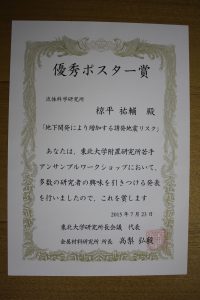 優秀ポスター賞
流体科学研究所
椋平 祐輔 殿
「地下開発により増加する誘発地震リスク」
あなたは、東北大学附置研究所若手
アンサンブルワークショップにおいて、
多数の研究者の興味を引きつける発表
を行いましたので、これを賞します
2015年7月23日
東北大学研究所長会議 代表
金属材料研究所 所長 高梨 弘毅